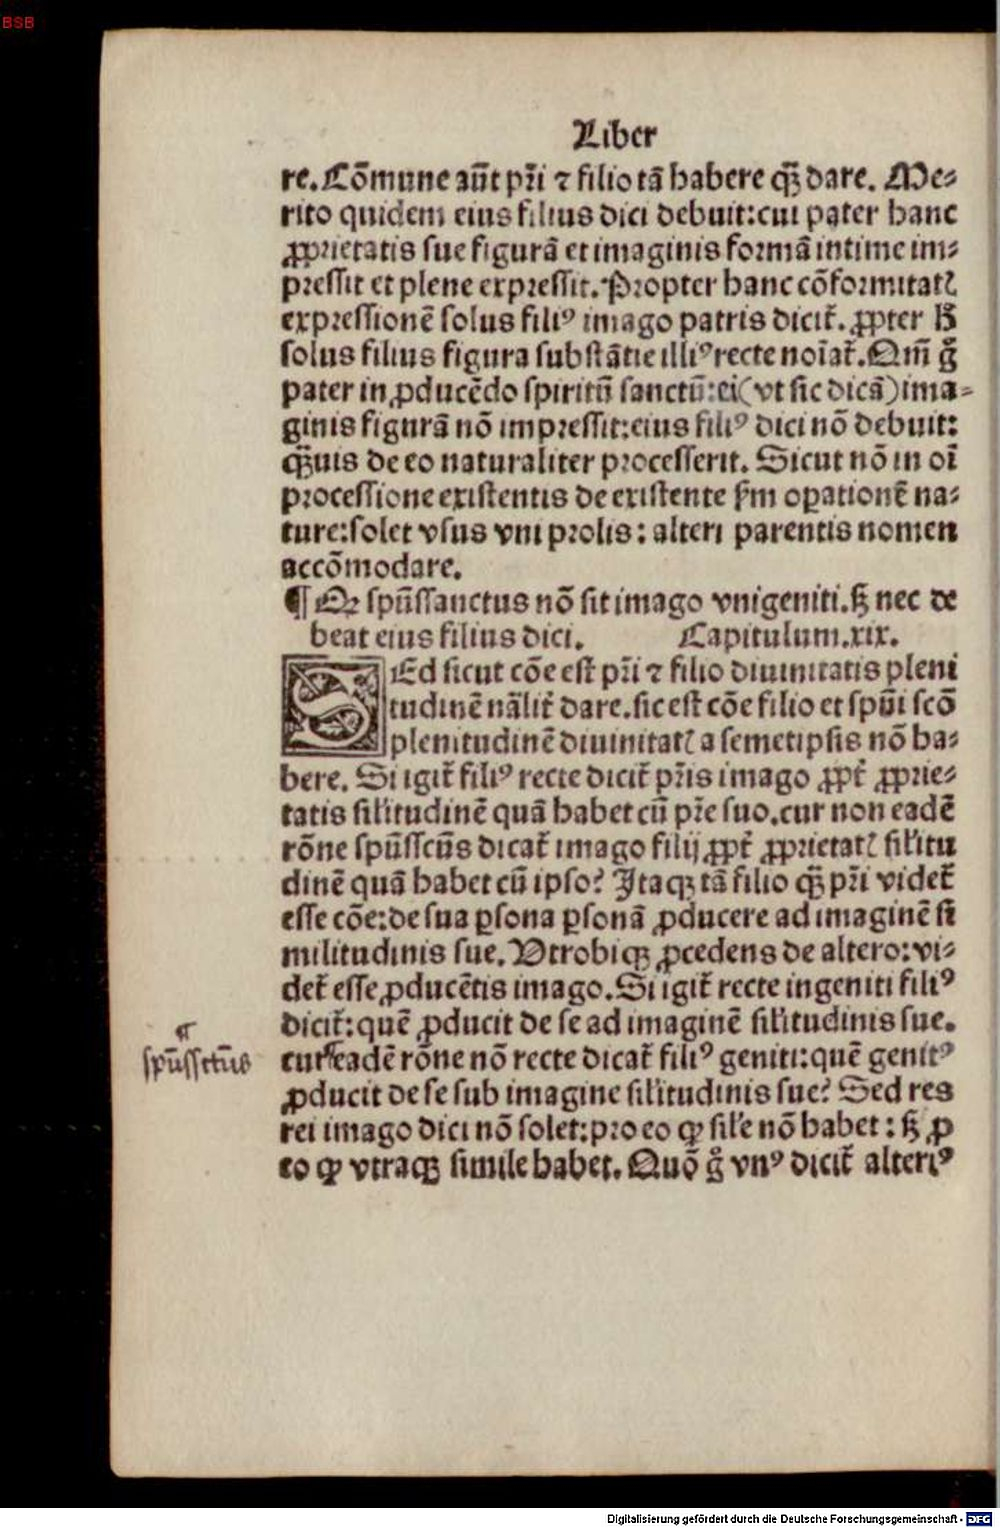 BSB
Liber
re. Cōmune aūt pr̄i ⁊ filio tā habere q̄ꝫ dare. Me⸗
rito quidem eius filius dici debuit: cui pater hanc
ꝓprietatis sue figurā et imaginis formā intime im⸗
pressit et plene expressit. Propter hanc cōformitatꝭ
expressionē solus filiꝰ imago patris dicit᷑. ꝓpter hͦ
solus filius figura substātie illiꝰ recte noīat᷑. Qm̄ gͦ
pater in ꝓducēdo spiritū sanctū: ei (vt sic dicā) ima⸗
ginis figurā nō impressit: eius filiꝰ dici nō debuit:
q̄ꝫuis de eo naturaliter processerit. Sicut nō in oī
processione existentis de existente ẜm oꝑationē na⸗
ture: solet vsus vni prolis: alteri parentis nomen
accōmodare.
¶ Qꝛ spūssanctus nō sit imago vnigeniti. sꝫ nec de
beat eius filius dici. Capitulum. xix.
SEd sicut cōe est pr̄i ⁊ filio diuinitatis pleni
tudinē nālit᷑ dare. sic est cōe filio et spūi scō
plenitudinē diuinitatꝭ a semetipsis nō ha⸗
bere. Si igit᷑ filiꝰ recte dicit᷑ pr̄is imago ꝓpt᷑ ꝓprie⸗
tatis sil̓itudinē quā habet cū pr̄e suo. cur non eadē
rōne spūsscūs dicat᷑ imago filij ꝓpt᷑ ꝓprietatꝭ sil̓itu
dinē quā habet cū ipso? Itaqꝫ tā filio q̄ꝫ pr̄i videt᷑
esse cōe: de sua ꝑsona ꝑsonā ꝓducere ad imaginē si
militudinis sue. Vtrobiqꝫ ꝓcedens de altero: vi⸗
det᷑ esse ꝓducētis imago. Si igit᷑ recte ingeniti filiꝰ
dicit᷑: quē ꝓducit de se ad imaginē sil̓itudinis sue.
¶
spūsscūs
cur eadē rōne nō recte dicat᷑ filiꝰ geniti: quē genitꝰ
ꝓducit de se sub imagine sil̓itudinis sue? Sed res
rei imago dici nō solet: pro eo ꝙ sil̓e nō habet: sꝫ ꝓ
eo ꝙ vtraqꝫ simile habet. Quō gͦ vnꝰ dicit᷑ alteriꝰ
Digitalisierung gefördert durch die Deutsche Forschungsgemeinschaft - DFG